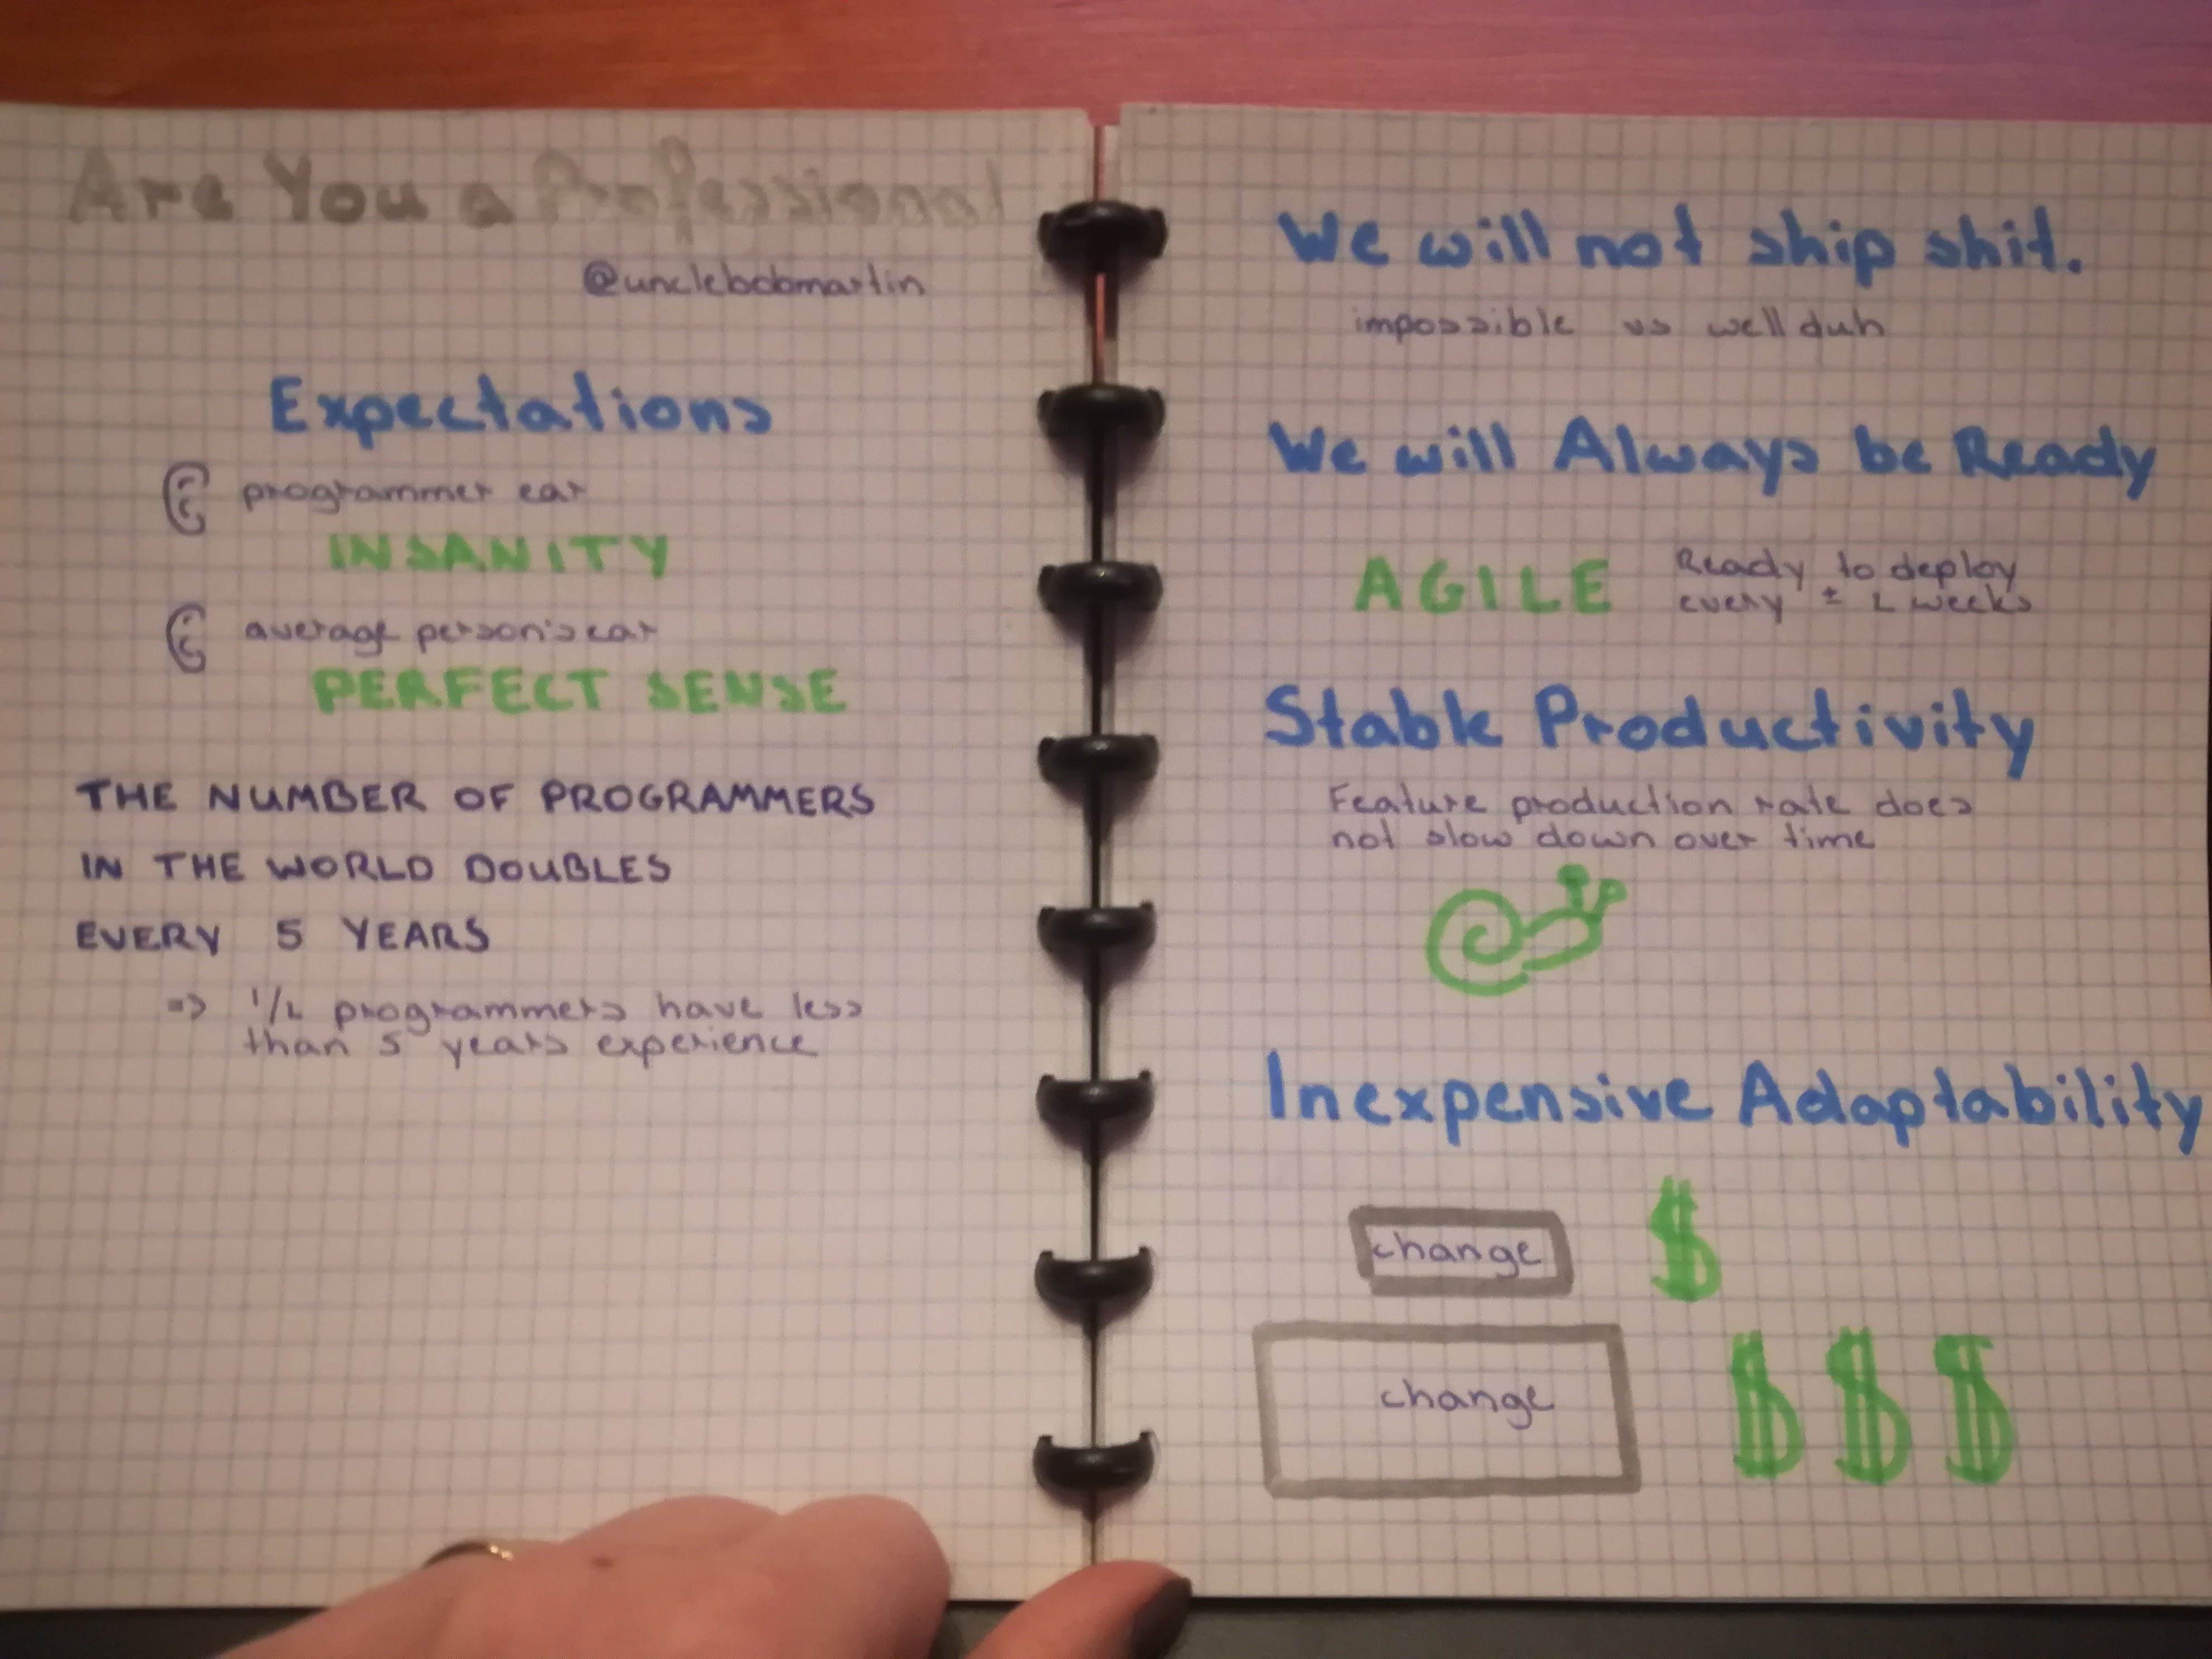 Are You a Professional
@unclebobmartin
Expectations
programmer ear
INSANITY
average person's ear
PERFECT SENSE
THE NUMBER OF PROGRAMMERS
IN THE WORLD DOUBLES
EVERY 5 YEARS
=> 1/2 programmers have less
than 5 years experience
We will not ship shit.
impossible vs well duh
We will Always be Ready
AGILE
Ready to deploy
every ± 2 weeks
Stable Productivity
Feature production rate does
not slow down over time
Inexpensive Adaptability
change $
change $ $ $